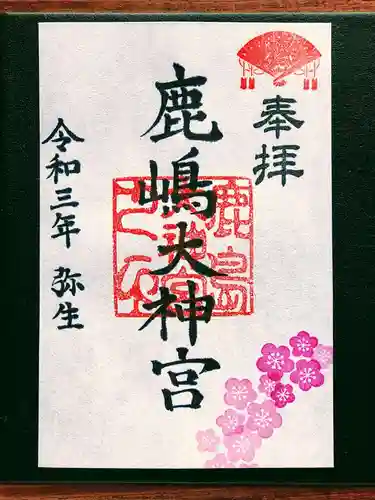 奉拝
鹿嶋大神宮
令和三年 弥生